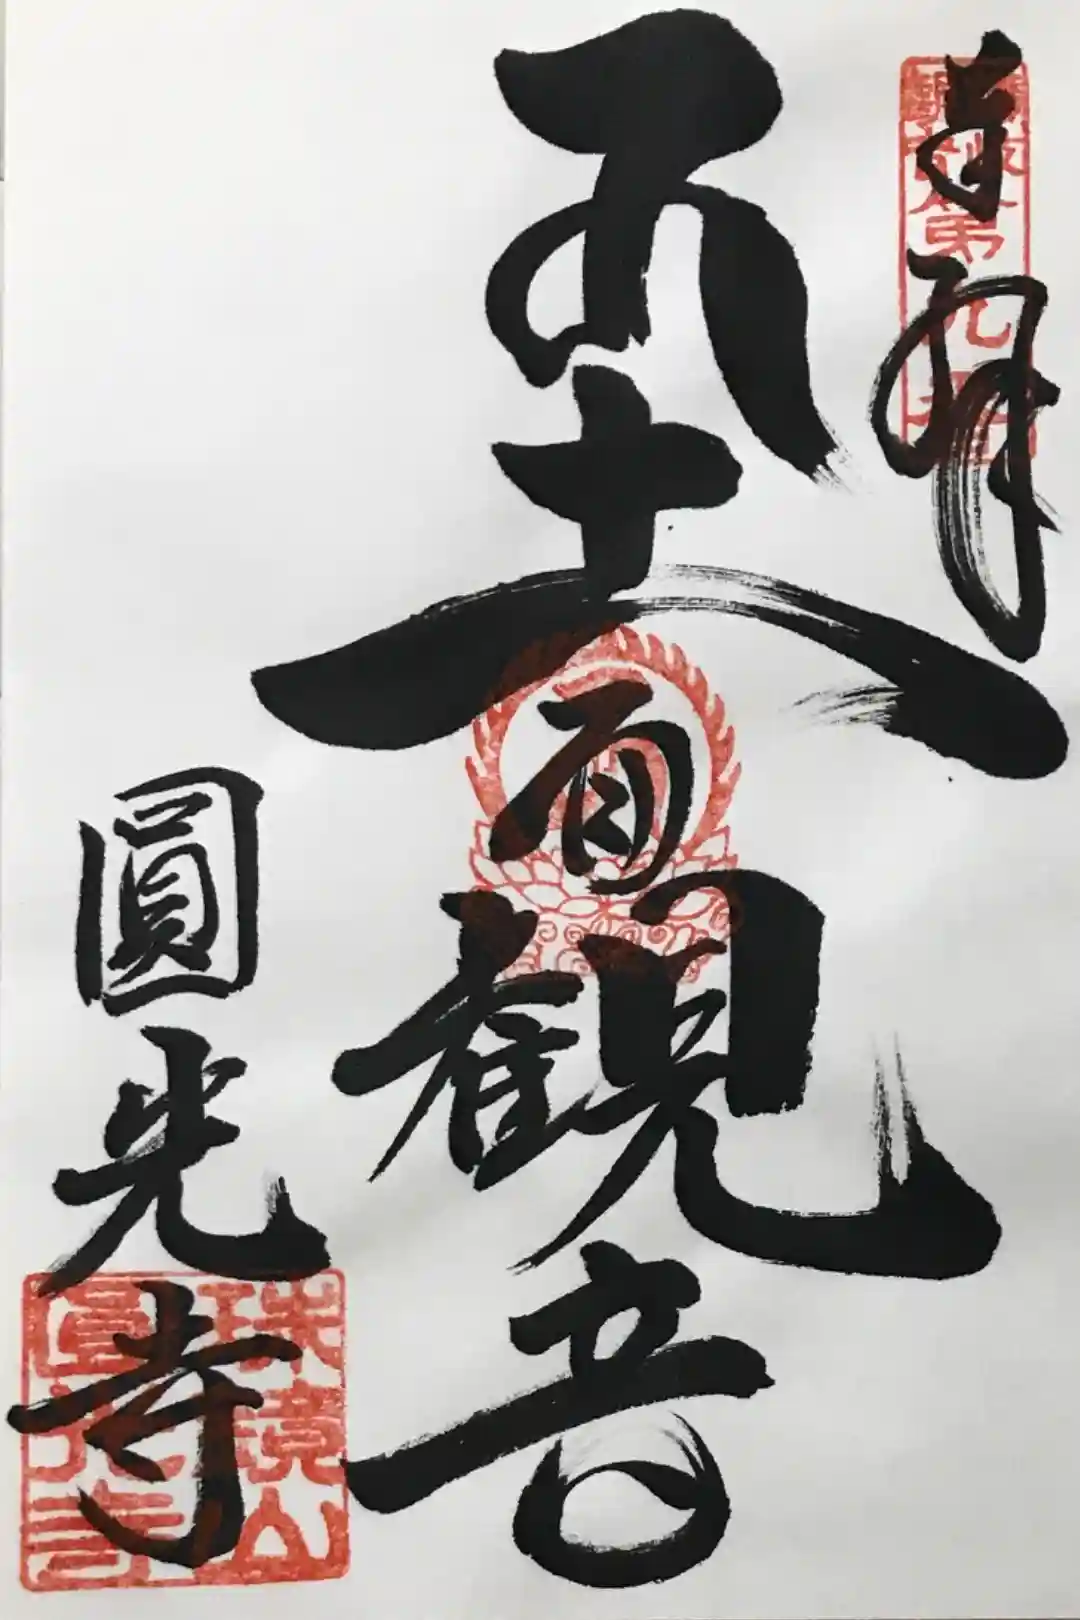 奉拝
第九番
十一面観音
圓光寺
珠鏡山
圓光寺